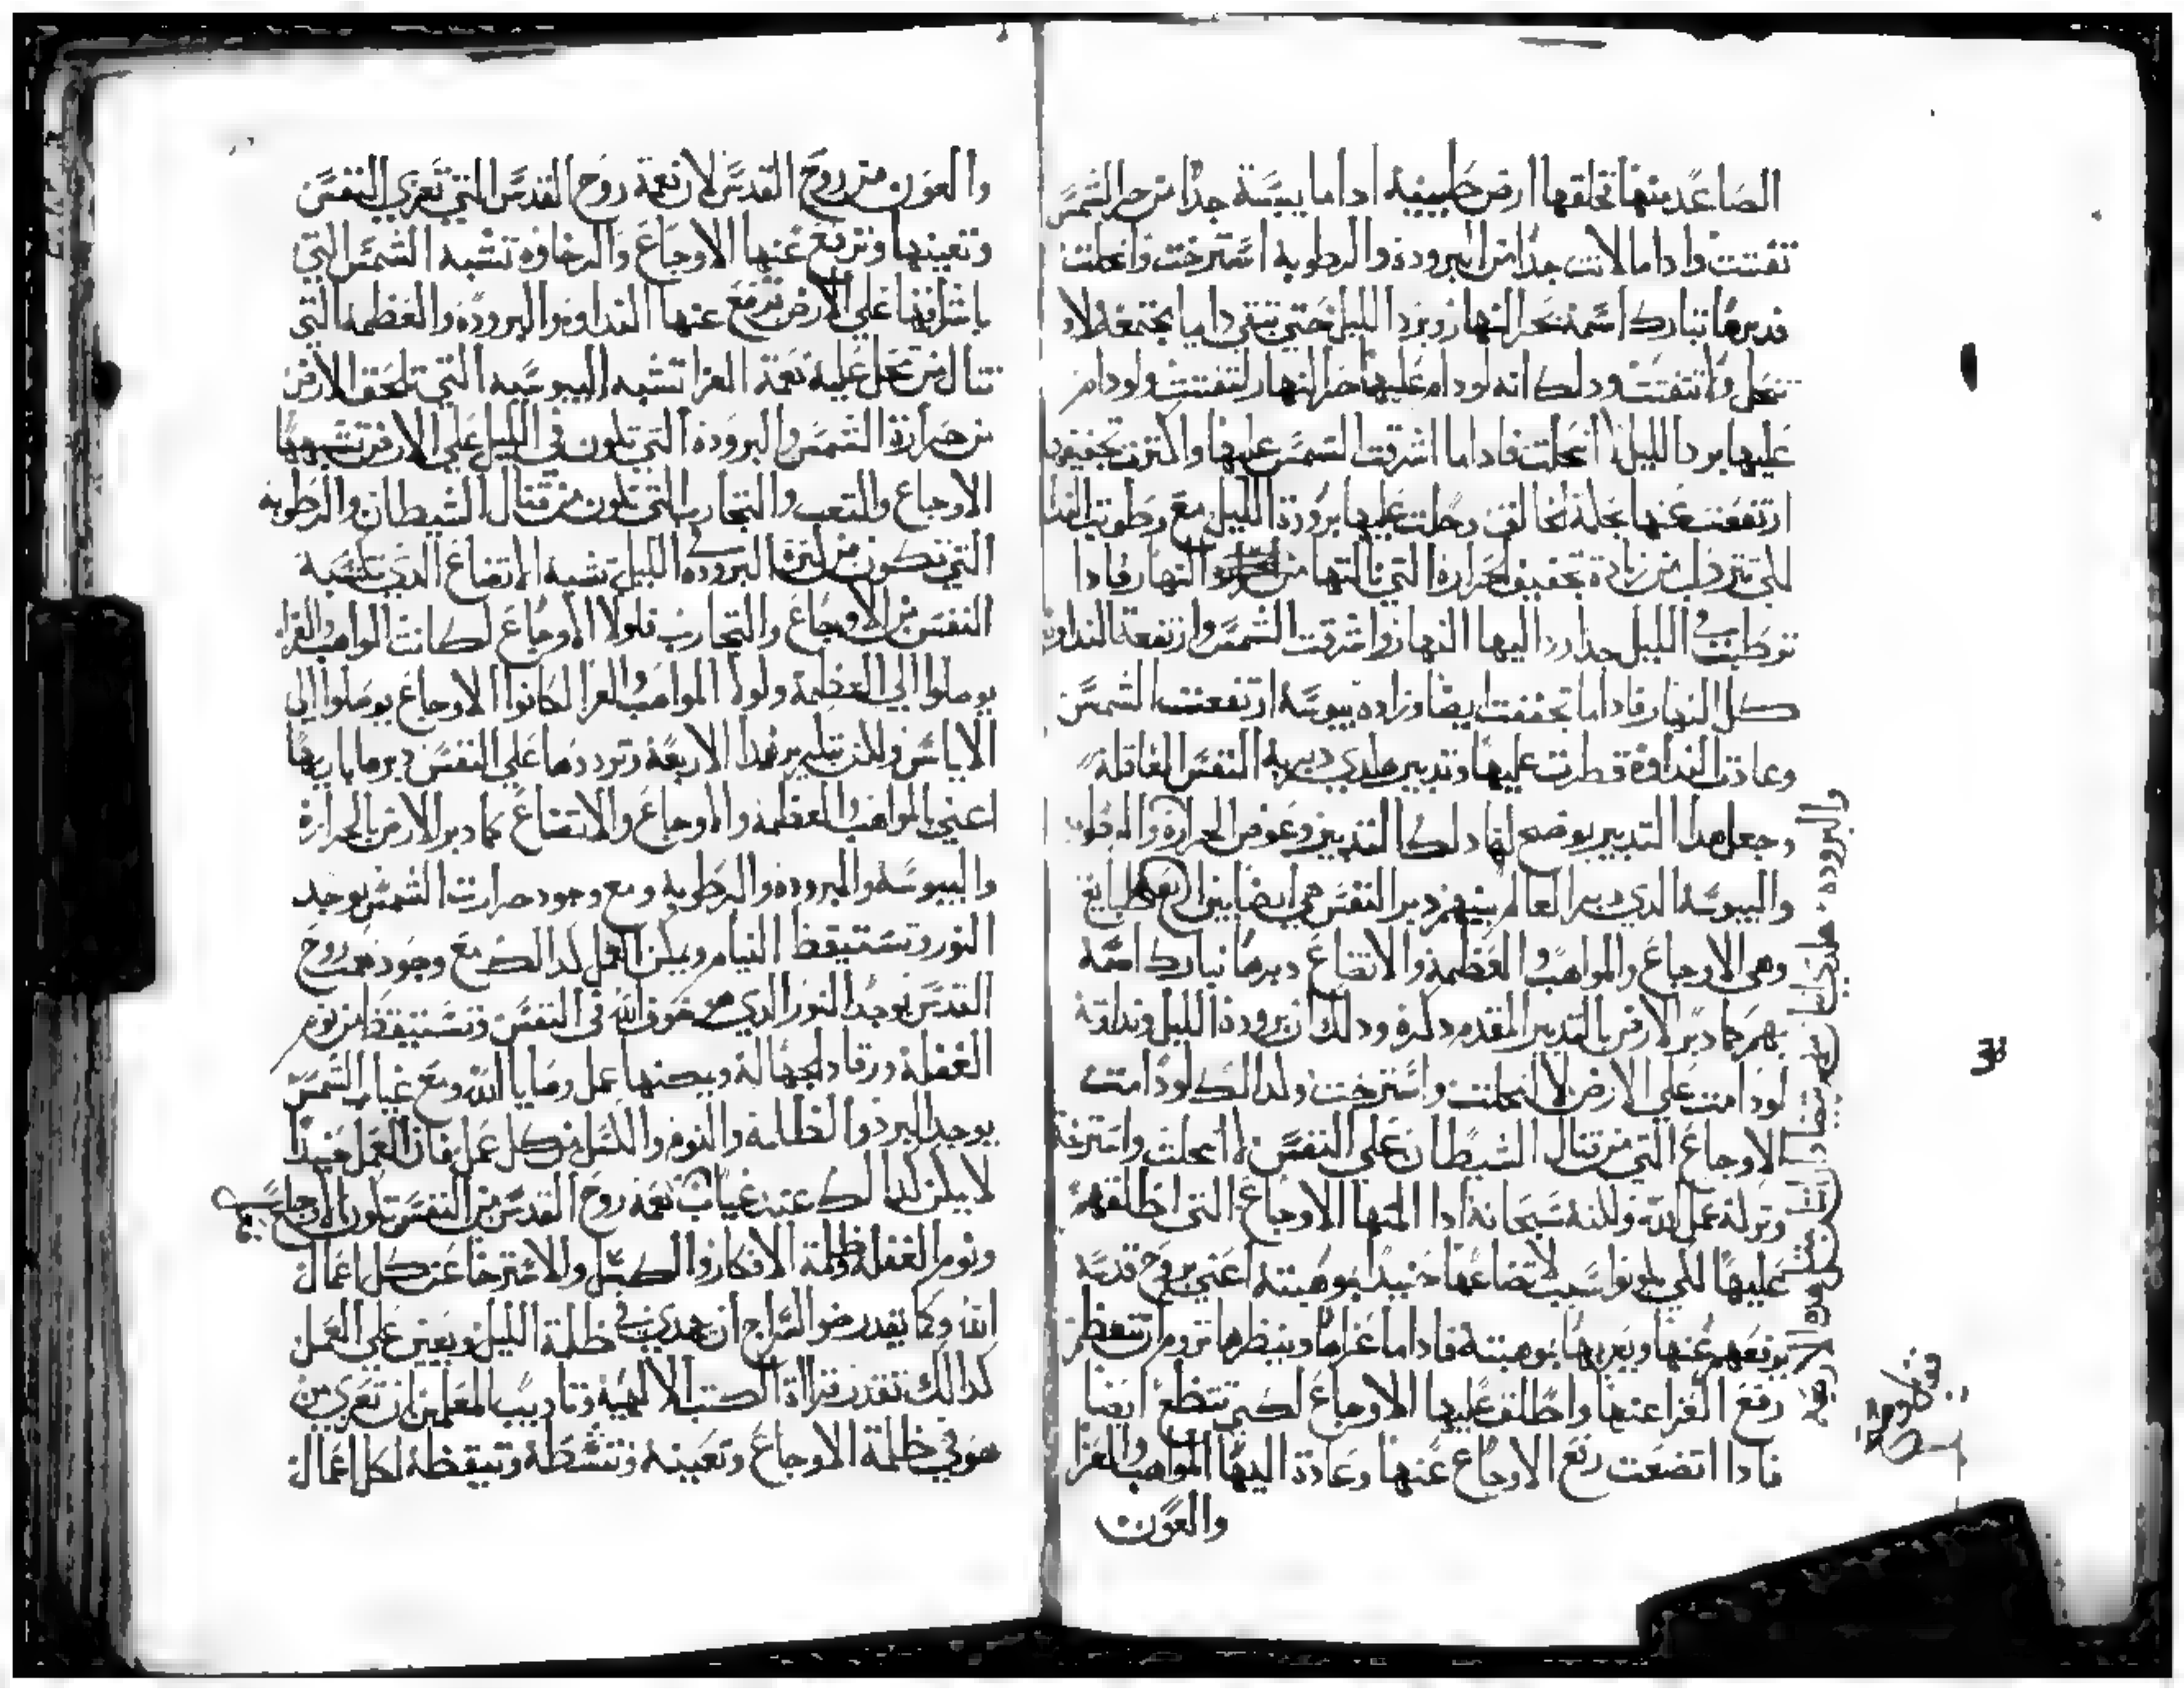 الصاعد منها تحلقها ارض طبيعيه اداما يبسة جدا من حر الشمس
تفتتت واداما لانت جدا من البروده والرطوبه استرخت وانحلت
فدبرها تبارك اسمه بحر النهار وبرد الليل حتى تبقي دايما مجتمعه لا
تنحل ولا تتفتت ودلك انه لو دام عليها حر النهار لتفتتت ولو دام
عليها برد الليل لانحلت فاداما اشرقت الشمس عليها واكترت تجفيفها
ارتفعت عنها وحلت عليها برودة الليل مع رطوبت الندا
لكي تبرد من زيادة تجفيف الحرارة التي نالتها من النهار فادا
ترطبت في الليل جدا رد اليها النهار واشرقت الشمس وارتفعة النداوه
كل النهار فاداما تجففت ايضا وزاده يبوسه ارتفعت الشمس
وعادت النداوة قطرت عليها وتدبير هدي دبر به النفس العاقله
وجعل هدا التدبير يوضح لها دلك التدبير وعوض الحراره والرطوبه
واليبوسه الدي دبر العالم بينهم دبر النفس هي ايضا بين اربع طبايع
وهي الاوجاع والمواهب والعظمه والاتضاع دبرها تبارك اسمه
بهم كما دبر الارض بالتدبير المقدم دكره ودلك ان برودة الليل ونداوته
لو دامت علي الارض لانحلت واسترخت ولدالك لو دامت
الاوجاع التي من قتال الشيطان علي النفس لانحلت واسترخة
وتركة عمل الله ولكنه سبحانه ادا المتها الاوجاع التي اطلقهم
عليها لكي يكونوا سبب لاتضاعها حينيدا بموهبته اعني بروح قدسه
يرفعهم عنها ويعزيها بموهبته فاداما عزاها وينظرها تروم ان تتعظم
رفع العزا عنها واطلق عليها الاوجاع لكي تتضع ايضا
فادا اتضعت رفع الاوجاع عنها وعادة اليها المواهب والعزا
والعون
والبروده
هذه الاربعه
والعون من روح القدس لان نعمة روح القدس التي تعزي النفس
وتعينها وترفع عنها الاوجاع والرخاوه تشبه الشمس التي
باشراقها علي الارض ترفع عنها النداوه والبروده والعظمه التي
تنال من تحل عليه نعمة العزا تشبه اليبوسه التي تلحق الارض
من حرارة الشمس والبرودة التي تكون في الليل علي الارض تشبهها
الاوجاع والتعب والتجارب التي تكون من قتال الشيطان والرطوبه
التي تكون من كترة البروده في الليل تشبه الاتضاع الدي تكتسبه
النفس من الاوجاع والتجارب فلولا الاوجاع لكانت المواهب والعزا
يوصلوا الي العظمة ولولا المواهب والعزا لكانوا الاوجاع يوصلوا الي
الاياس ولكن بتدبير هدا الاربعه وترددها علي النفس دبرها باريها
اعني بالمواهب والعظمه والاوجاع والاتضاع كما دبر الارض بالحرارة
واليبوسه والبروده والرطوبه ومع وجود حرارت الشمس يوجد
النور وتستيقظ النيام ويمكن العمل كدالك مع وجود نعمت روح
القدس يوجد النور الدي هو خوف الله في النفس وتستيقظ من نوم
الغفلة ورقاد الجهالة ويمكنها عمل وصايا الله ومع غياب الشمس
يوجد البرد والظلمه والنوم والكسل من كل عمل فان العمل حينيدا
لا يمكن كدالك عند غياب نعمة روح القدس من النفس تكون الاوجاع
ونوم الغفله وظلمة الافكار والكسل والاسترخا عن كل اعمال
الله وكما يقدر ضو السراج ان يهدي في ظلمة الليل ويعين علي العمل
كدالك تقدر قراة الكتب الالهيه وتاديب المعلمين ان تعزي من
هو في ظلمة الاوجاع وتعينه وتنشطه وتيقظه لكل اعمال